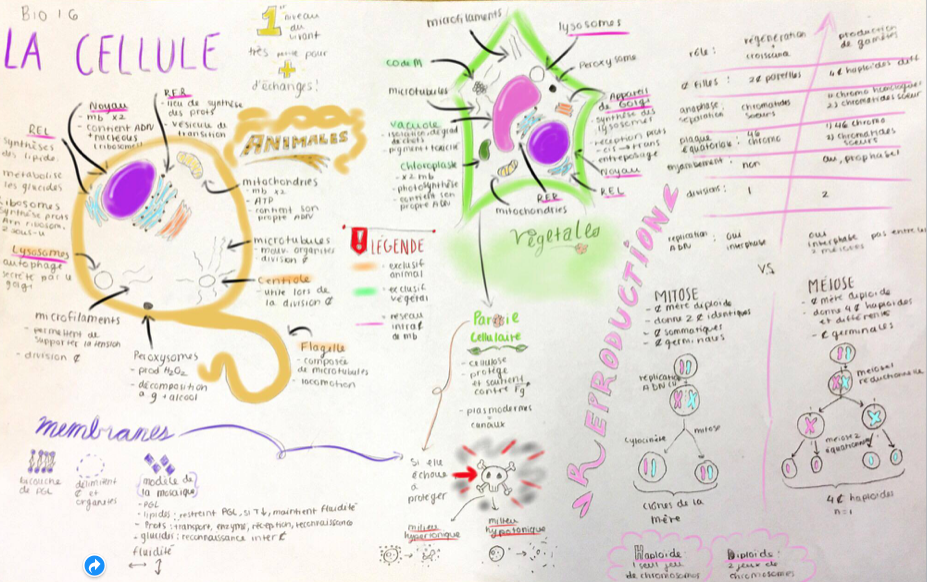 BIO 1 G
LA CELLULE
1er niveau
du
vivant
très pour
+
d'échanges!
ANIMALES
Noyau
- mb x2
- contient ADN
+ nucléous
(ribosomes)
RER
- lieu de synthèse
des prots
- vésicule de
transition
REL
synthèses
des lipide.
métabolise
les glucides
Ribosomes
synthèse prots
2 sous-u
Lysosomes
autophage
secrété par u
golgi
mitochondries
- mb x2
- ATP
- contient son
propre ADN
microtubules
- mouv. organites
- division ¢
Centriole
- utile lors de
la division ¢
microfilaments
- permettent de
supporter la tension
- division ¢
Peroxysomes
- prod H2O2
- décomposition
a.g + alcool
Flagelle
- composée
de microtubules
- locomotion
LÉGENDE
- exclusif
animal
- exclusif
végétal
- réseau
intra¢
de mb
microfilaments
lysosomes
Peroxysome
microtubules
vacuole
- pigment + toxicité
chloroplaste
- x2 mb
- photosynthèse
- contient son
propre ADN
Appareil
de Golgi
- synthèse des
lysosomes
- réception prots
cis → trans
entreposage
Noyau
REL
RER
mitochondries
Végétales
Paroie
Cellulaire
- cellulose
- protège
et soutient
contre Fg
- plasmodermes
=
canaux
membranes
bicouche
de PGL
délimitent
¢ et
organites
modèle de
la mosaïque
- PGL
- lipides: restreint PGL, si T↓, maintient fluidité
- Prots: transport, enzyms, réception, reconnaissance
- glucides: reconnaissance inter ¢
fluidité
Si elle
échoue
à
protéger
milieu
hypertonique
milieu
hypotonique
REPRODUCTION
régénération
croissance
production
de gamètes
rôle:
¢ filles:
2¢ pareilles
4¢ haploïdes diff
anaphase
séparation
chromatides
soeurs
1) chromo homologues
2) chromatides soeur
plaque
équatorial:
46
chromo
1) 46 chromo
2) chromatides
soeurs
enjambement:
non
oui, prophase I
divisions:
1
2
réplication
ADN
: oui
interphase
oui
interphase pas entre les
2 méioses
VS
MITOSE
- ¢ mère diploïde
- donne 2 ¢ identiques
- ¢ somatiques
- ¢ germinaux
réplication
ADN
cytocinèse
mitose
clones de la
mère
MÉIOSE
- ¢ mère diploïde
- donne 4 ¢ haploïdes
et différents
- ¢ germinales
meiose 1
réductionnelle
meiose 2
équationnelle
4¢ haploïdes
n=1
Haploïde
1 seul jeu
de chromosomes
Diploïde:
2 jeux de
chromosomes